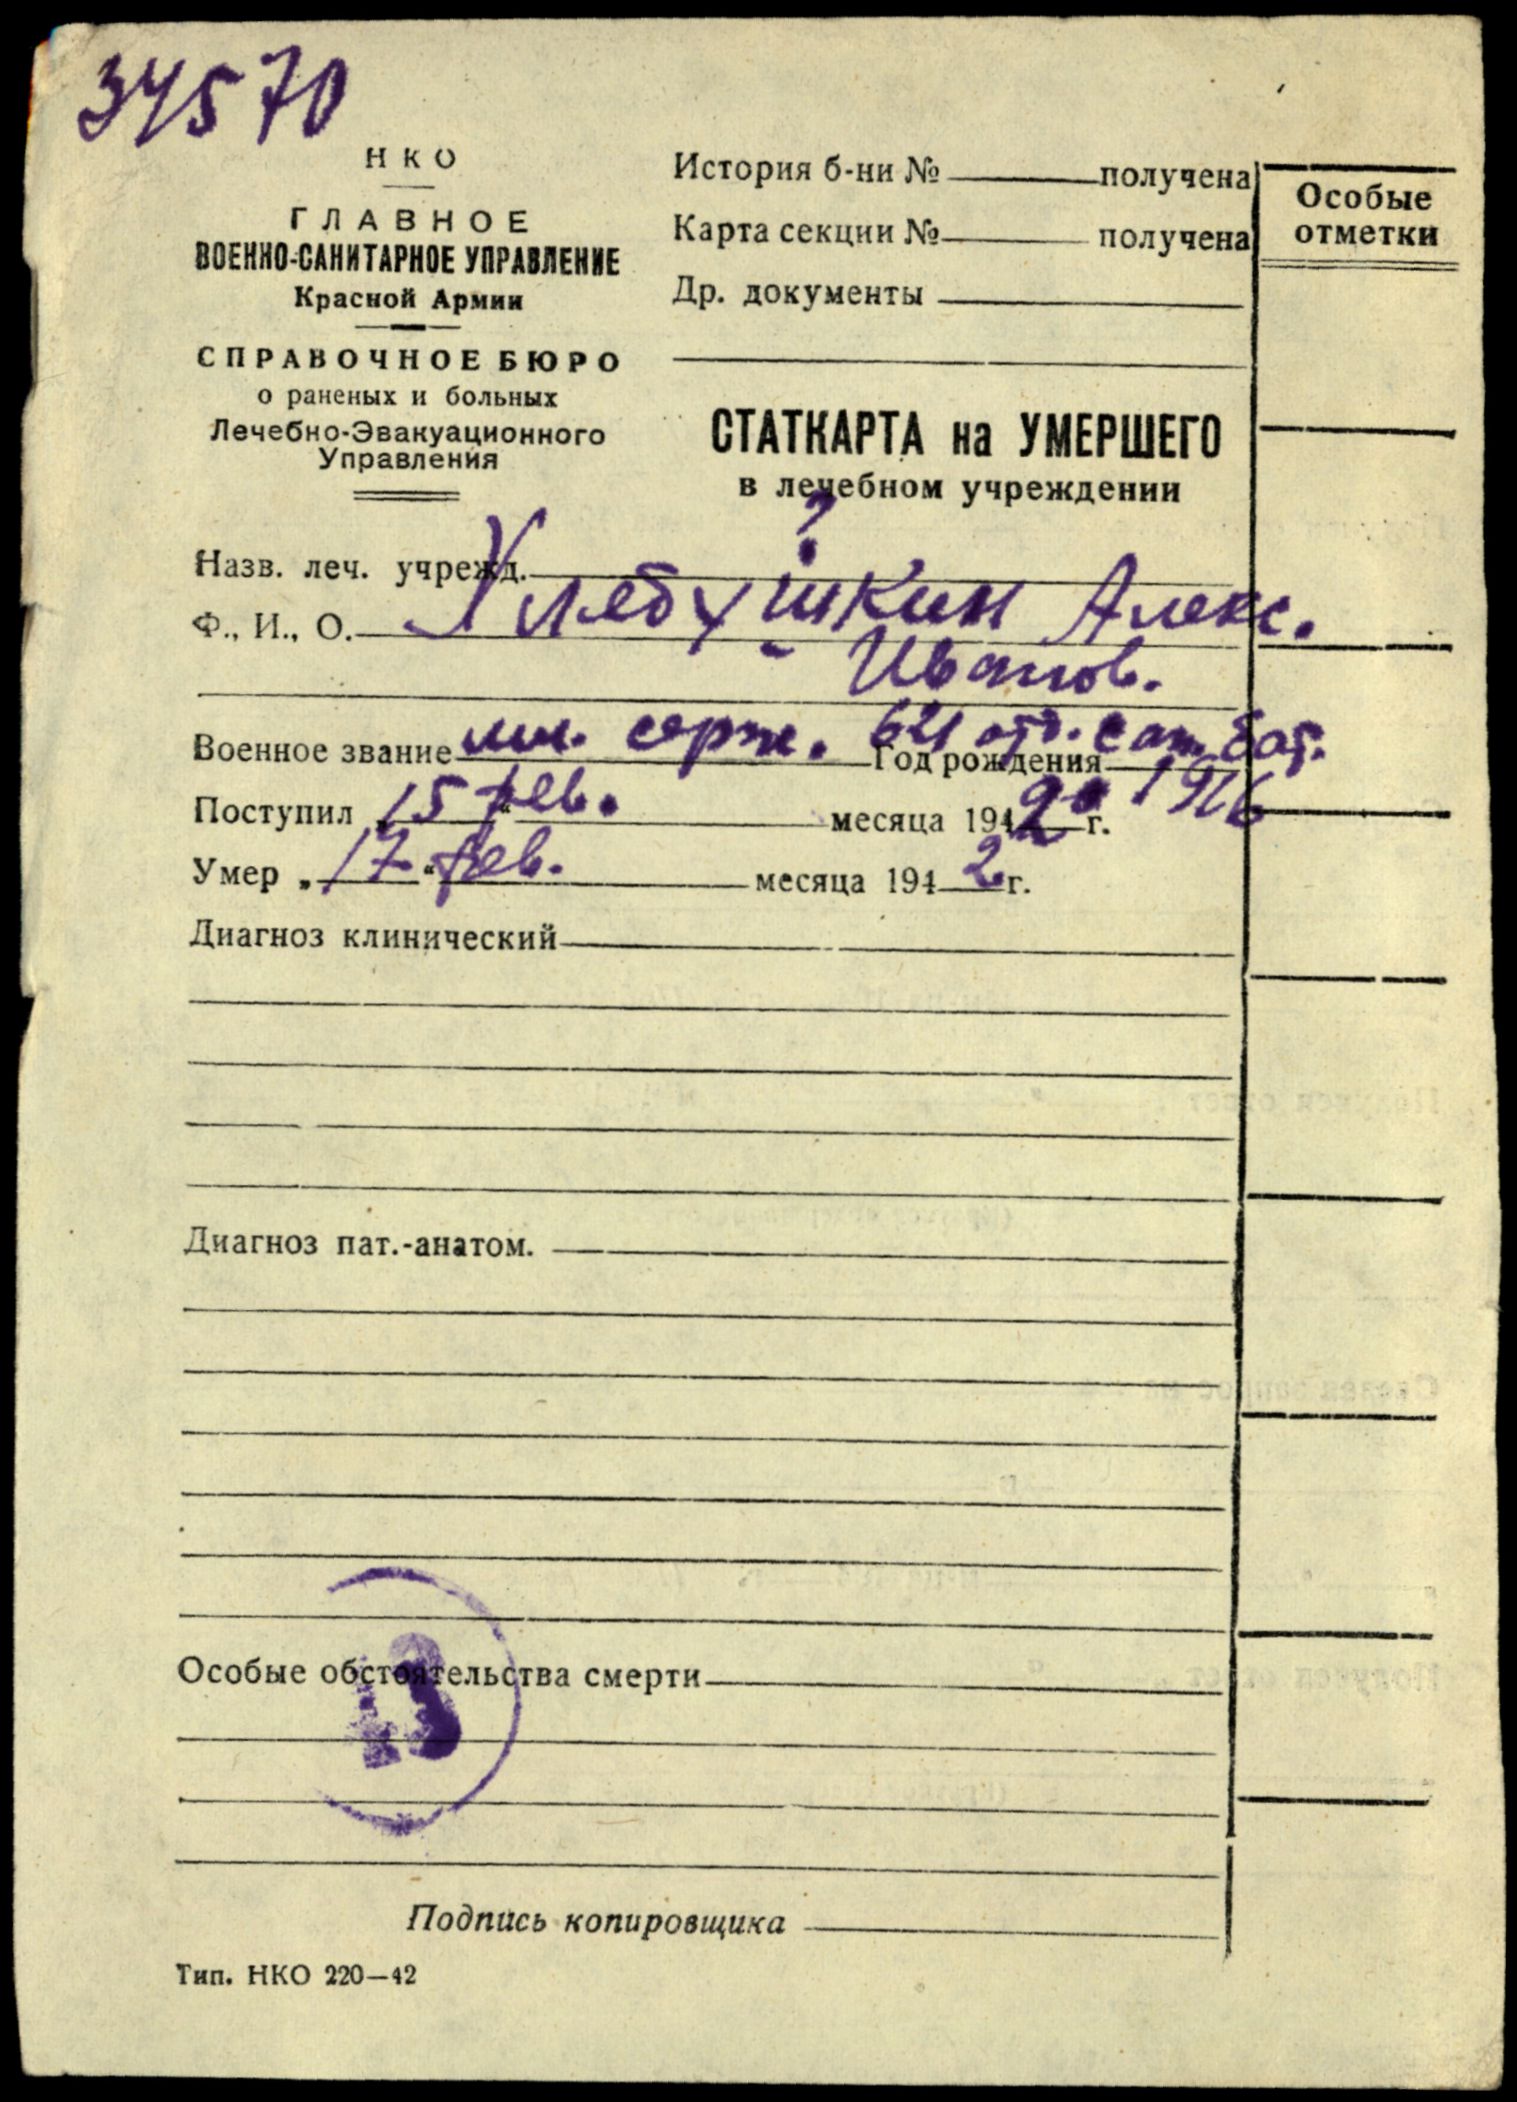 34570
НКО
ГЛАВНОЕ
ВОЕННО-САНИТАРНОЕ УПРАВЛЕНИЕ
Красной Армии
СПРАВОЧНОЕ БЮРО
о раненых и больных
Лечебно-Эвакуационного
Управления
История б-ни № получена
Карта секции № получена
Др. документы
Особые
отметки
СТАТКАРТА на УМЕРШЕГО
в лечебном учреждении
Назв. леч. учрежд. ?
Ф., И., О. Хлебушкин Алекс.
Иванов.
Военное звание мл. серж. 621 отд. сап. бат.
Год рождения 1916
Поступил „15“ фев. месяца 1942 г.
Умер „17“ фев. месяца 1942 г.
Диагноз клинический
Диагноз пат.-анатом.
Особые обстоятельства смерти
Подпись копировщика
Тип. НКО 220—42